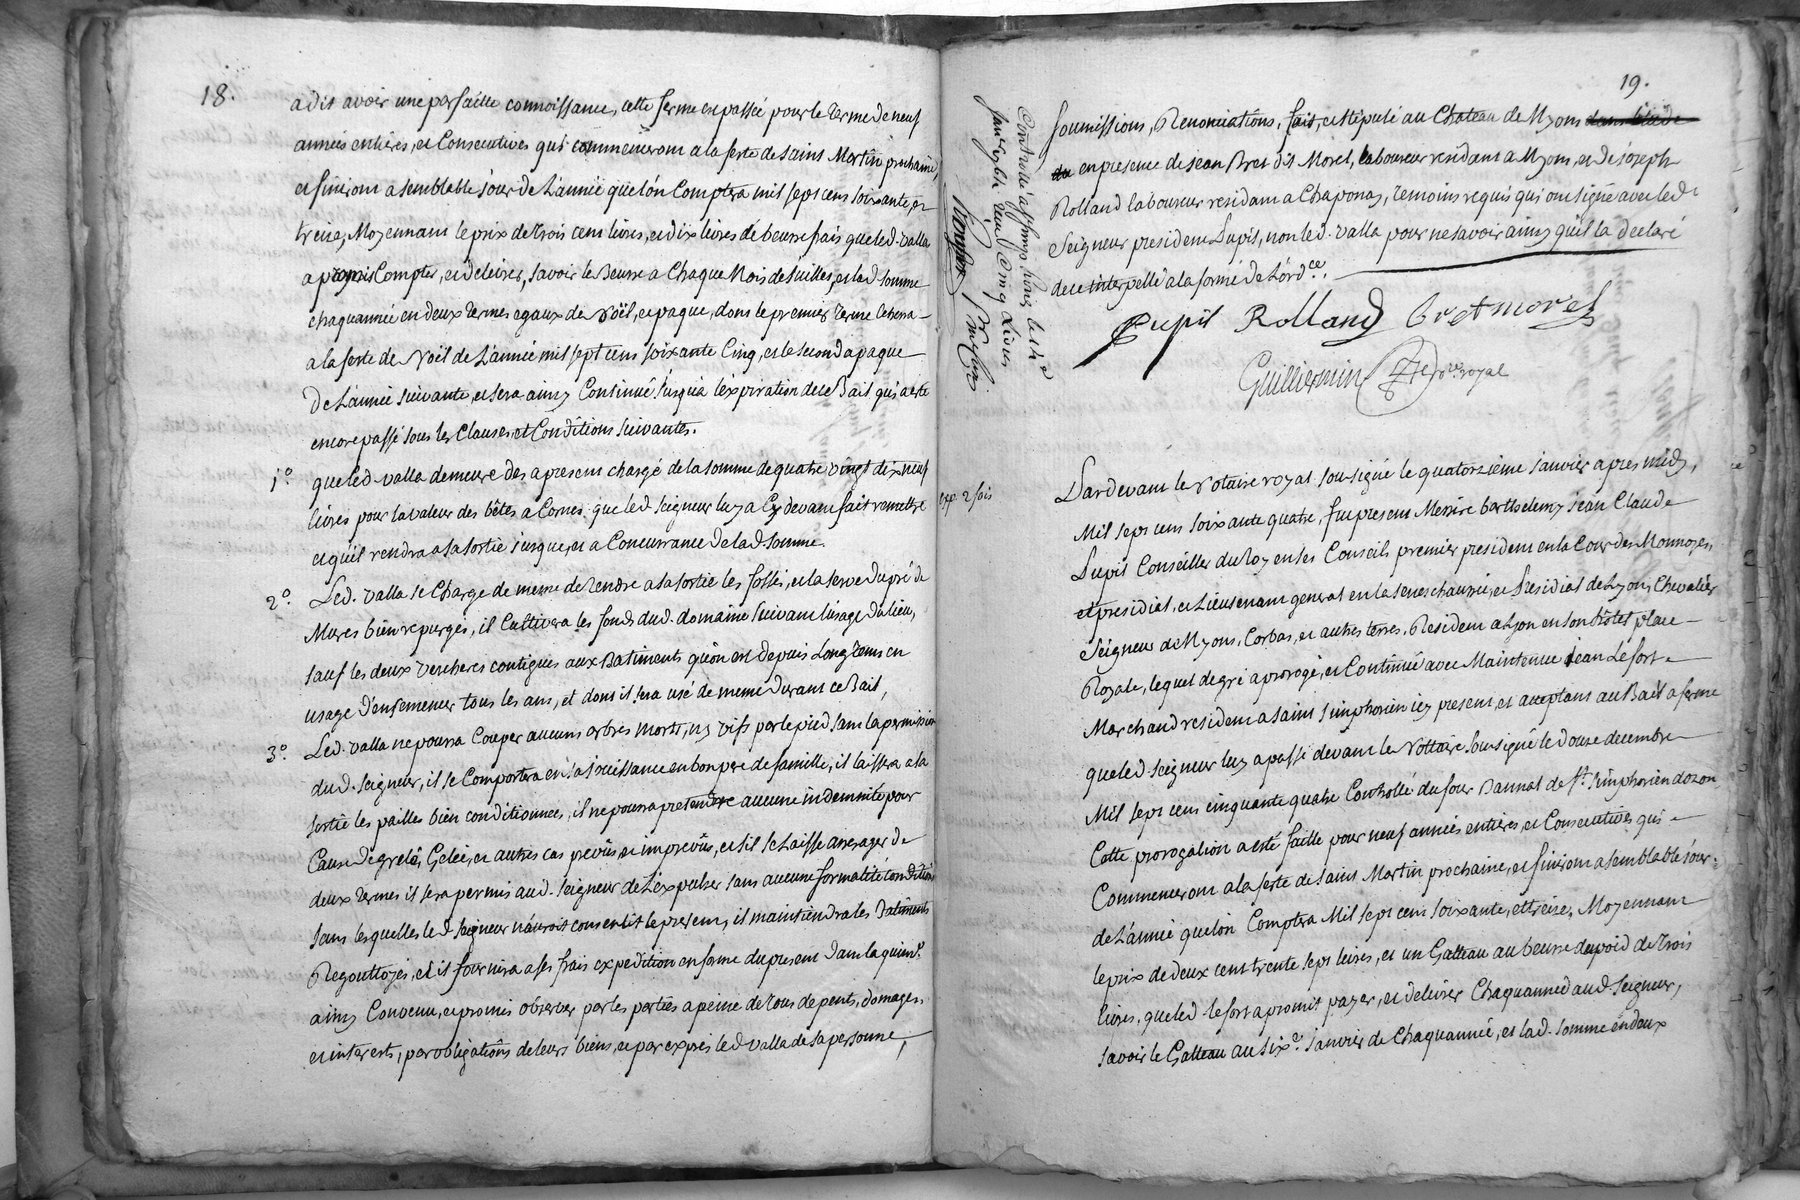 18.
a dit avoir une parfaitte connoissance, cette ferme est passée pour le terme de neuf
années entieres, et Consecutives qui commenceront a la feste de saint Martin prochaine,
et finiront a semblable jour de L'année que lon Comptera mil sept cent soixante, et
treize, Moyennant le prix de trois cent livres, et dix livres de beurre frais que led. valla
a promis Compter, et delivrer, savoir le Beurre a Chaque Mois de Juillet, et lad somme
chaquannée en deux termes egaux de Noël, et paque, dont le premier terme echerra
a la feste de Noël de L'année mil sept cent soixante Cinq, et le second a paque
De L'année suivante, et sera ainsy Continué jusqu'a l'expiration de ce Bail qui a esté
encore passé sous les Clauses, et Conditions suivantes.
1º. que led valla demeure des a present chargé de la somme de quatre vingt dix neuf
livres pour la valeur des bêtes a Cornes que led seigneur luy a Cy devant fait remettre
et qu'il rendra a sa sortie jusque, et a Concurrance de lad somme.
2º. Led. valla se Charge de meme de rendre a sa sortie les fossés, et la serve du pré de
Mures bien repurgés, il Cultivera les fonds dud. domaine suivant l'usage du lieu,
sauf les deux vercheres contigues aux Batiments qu'on est depuis Longtems en
usage d'ensemencer tous les ans, et dont il sera usé de meme durant ce Bail,
3º. Led. valla ne pourra Couper aucuns arbres morts, ny vifs par le pied sans la permission
dud. seigneur, il se Comportera en sa jouissance en bon pere de famille, il laissera a la
sortie les pailles bien conditionnées, il ne pourra pretendre aucune indemnité pour
Cause de grele, Gelée, et autres cas prevûs, et imprevûs, et s'il se Laisse arrerager de
deux termes il sera permis aud. seigneur de L'expulser sans aucune formalité conditions
sans lesquelles led seigneur n'auroit consentit le present, il maintiendra les Batiments
Regouttoyés, et il fournira a ses frais expedition en forme du present dans la quinz.e
ainsy Convenu, et promis observer par les parties a peine de tous depents, domages,
et interests, par obligations de leurs biens, et par exprès led valla de sa personne,
19.
Controllé a st simph. d'ozon le 24e
janv. 1764 reçu Cinq Livres
soumissions, Renonciations, fait, et stipulé au Chateau de Myons
en presence de jean Bret dit Morel, laboureur residant a Myons, et de joseph
Rolland laboureur residant a Chaponay, temoins requis qui ont signé avec led
Seigneur president Pupil, non led. valla pour ne savoir ainsy qu'il la declaré
de ce interpellé a la forme de L'ord.ce.
Pupil Rolland Bretmorel
Guilliermin No.re royal
exp. 2 fois
Pardevant le Notaire royal soussigné le quatorzieme janvier apres midy,
Mil sept cent soixante quatre, fut present Messire barthelemy jean Claude
Pupil Conseiller du Roy en ses Conseils premier president en la Cour des Monnoyes,
et presidial, et Lieutenant general en la seneschaussée, et Presidial de Lyon, Chevalier
Seigneur de Myons, Corbas, et autres terres, Resident a Lyon en son hôtel place
Royale, lequel de gré a prorogé, et Continué avec Maintenue jean Lefort
Marchand resident a saint simphorien icy present, et acceptant au Bail a ferme
que led seigneur luy a passé devant le Nottaire soussigné le douze decembre
Mil sept cent cinquante quatre Controllé du four Bannal de st. simphorien dozon,
Cette prorogation a esté faitte pour neuf années entieres, et Consecutives qui
Commenceront a la feste de saint Martin prochaine, et finiront a semblable jour
de L'année quelon Comptera Mil sept cent soixante, et treize, Moyennant
le prix de deux cent trente sept livres, et un Gatteau au beurre du poid de trois
livres, que led lefort a promit payer, et delivrer Chaquannée aud. Seigneur,
savoir le Gatteau au six.e janvier de Chaquannée, et lad. somme en deux